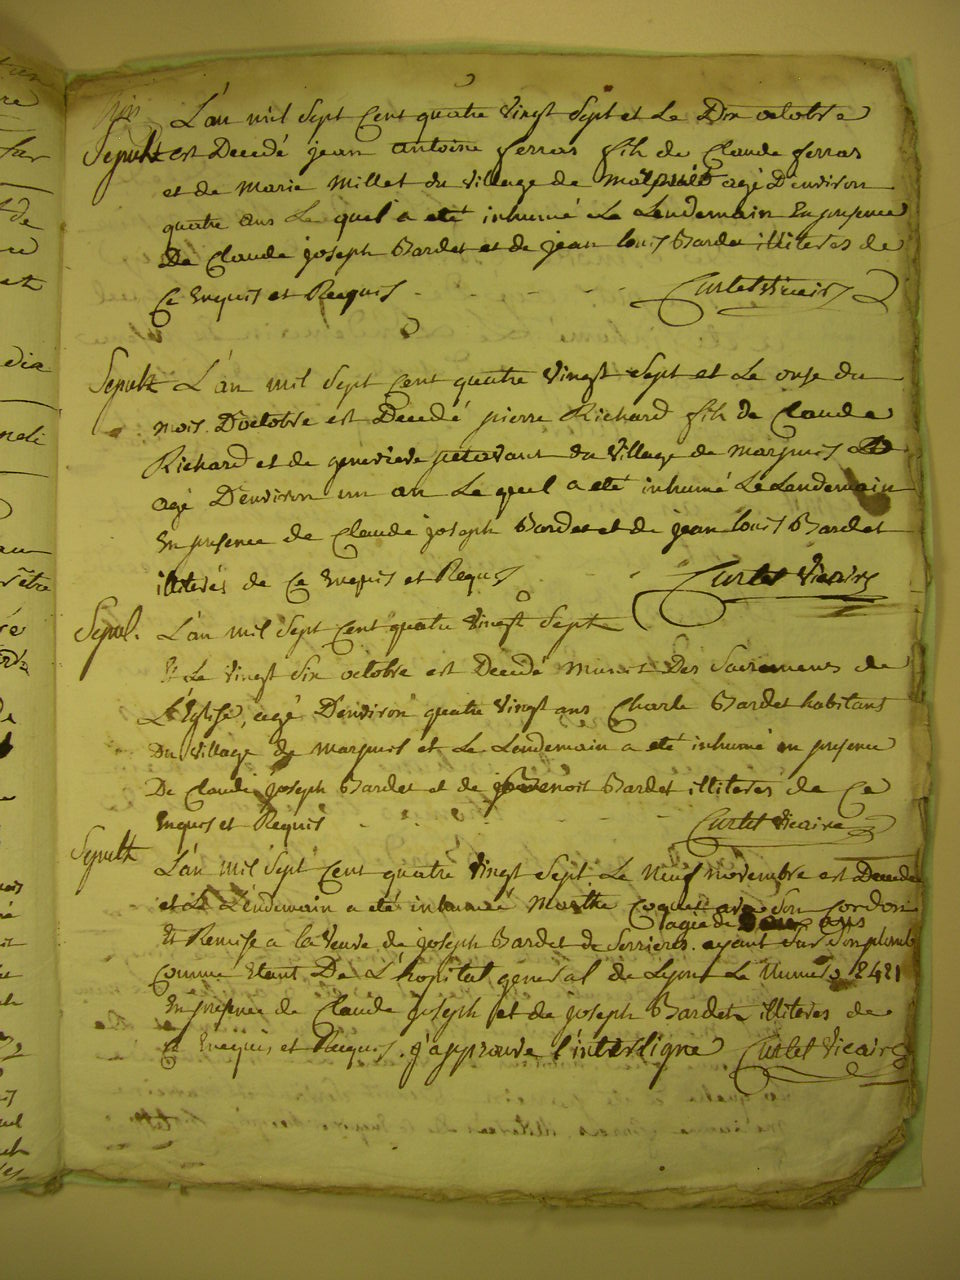 L'an mil Sept Cent quatre vingt Sept et Le Dix octobre
Sepult est Decedé jean antoine ferras fils de Claude ferras
et de marie millet du village de agé D'environ
quatre ans Le quel a eté inhumé Le Lendemain En presence
De Claude joseph Bardet et de jean louis Bardet illiterés de
Ce Enquis et Requis Curtet vicaire
Sepult L'an mil Sept Cent quatre vingt Sept et Le onze du
mois D'octobre est Decedé pierre Richard fils de Claude
Richard et de genevieve du village de marjnies
agé D'environ un an Le quel a eté inhumé Le Lendemain
En presence de Claude joseph Bardet et de jean louis Bardet
illiterés de Ce Enquis et Requis Curtet vicaire
Sepul. L'an mil Sept Cent quatre vingt Sept
Et Le vingt Six octobre est Decedé muni Des Sacremens de
L'Eglise, agé D'environ quatre vingt ans Charle Bardet habitans
Du village de et Le Lendemain a eté inhumé en presence
De Claude joseph Bardet et de Benoit Bardet illiterés de Ce
Enquis et Requis Curtet vicaire
Sepult
L'an mil Sept Cent quatre vingt Sept Le Neuf novembre est Decedée
et Le Lendemain a eté inhumée Marthe avec Son Cordon
agée de ans
Et Remise a la veuve de joseph Bardet de Serrieres. ayant Sur Son plomb
Comme Etant De L'hopital general de Lyon Le Numero 2421
En presence de Claude joseph et de joseph Bardet illiterés de
Ce Enquis et Requis. j'approuve l'interligne Curtet vicaire